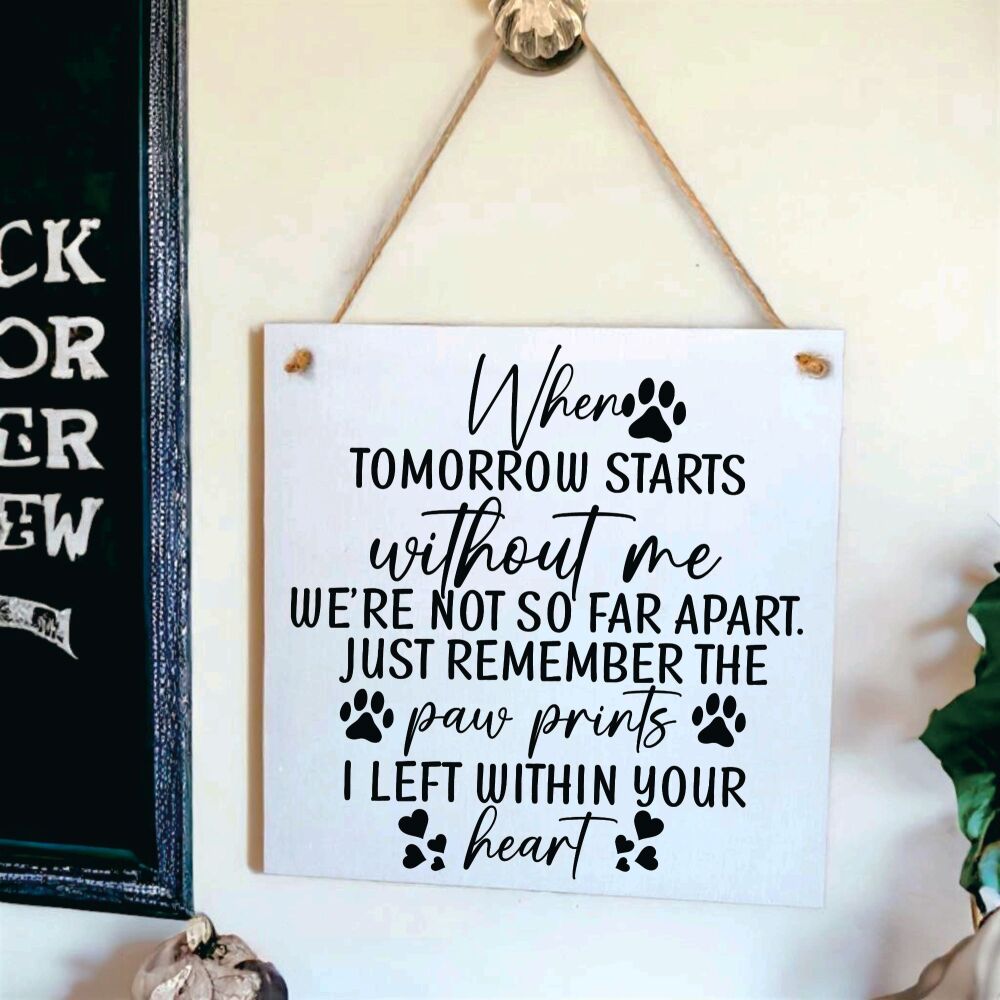 CK
OR
ER
EW
When
TOMORROW STARTS
without me
WE'RE NOT SO FAR APART.
JUST REMEMBER THE
paw prints
I LEFT WITHIN YOUR
heart